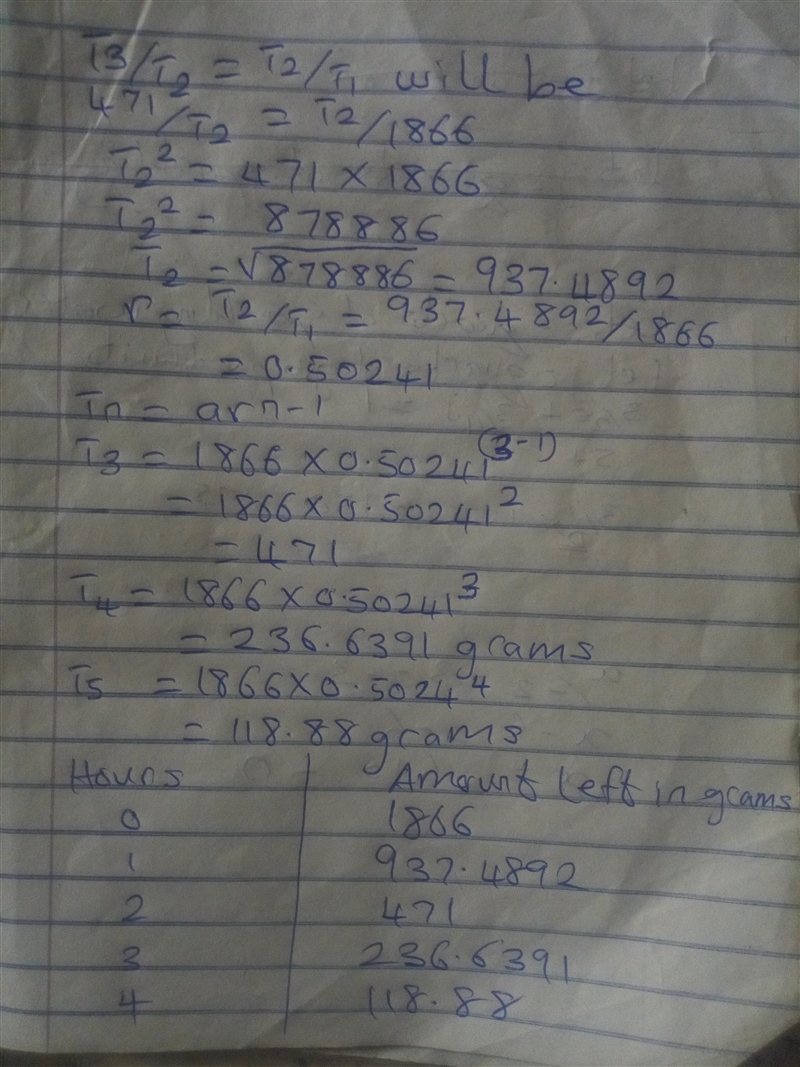 T3/T2 = T2/T1 will be
471/T2 = T2/1866
T2² = 471 × 1866
T2² = 878886
T2 = √878886 = 937.4892
r = T2/T1 = 937.4892/1866
= 0.50241
Tn = arn-1
T3 = 1866 × 0.50241(3-1)
= 1866 × 0.50241²
= 471
T4 = 1866 × 0.50241³
= 236.6391 grams
T5 = 1866 × 0.5024⁴
= 118.88 grams
Hours Amount left in grams
0 1866
1 937.4892
2 471
3 236.6391
4 118.88